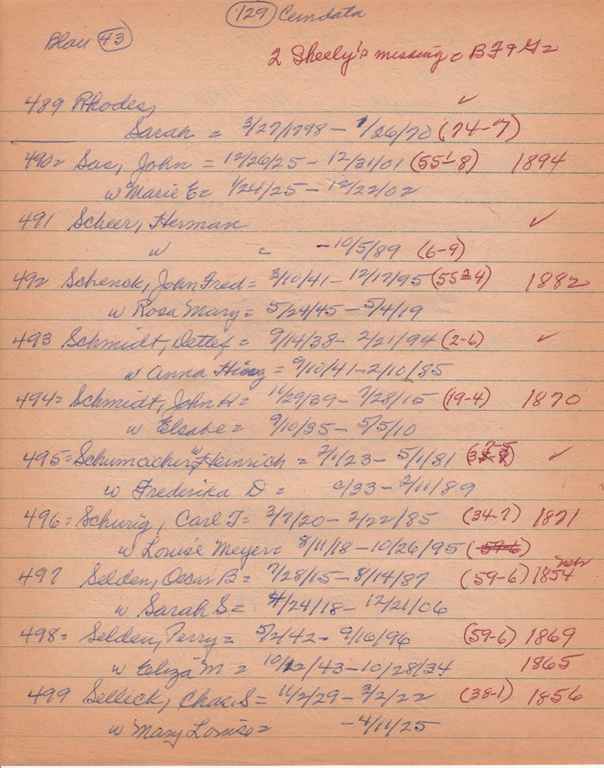 129 Cemdata
Blau 43
2 Sheely's missing = B F 9 G2
489 Rhodes, ✓
Sarah = 3/27/1798 - 1/26/70 (74-7)
490= Sas, John = 12/26/25 - 12/31/01 (55-8) 1894
w Marie E= 1/24/25 - 12/22/02
491 Scheer, Herman ✓
w = -10/5/89 (6-9)
492 Schenck, John Fred = 3/10/41 - 12/17/95 (55-4) 1882
w Rosa Mary = 5/24/45 - 5/4/19
493 Schmidt, Detlef = 9/14/38 - 2/21/94 (2-6) ✓
w Anna = 9/10/41-2/10/85
494= Schmidt, John H= 11/29/39 - 7/28/15 (19-4) 1870
w Elsabe = 9/10/35 - 5/5/10
495= Schumacher, Heinrich = 7/1/23 - 5/1/81 ✓
w Frederika D = c/33 - 2/11/89
496= Schurig, Carl T= 3/7/20 - 2/22/85 (34-7) 1871
w Louise Meyer= 8/11/18 - 10/26/95 (59-6)
497 Selden, Oscar B= 7/28/15 - 8/14/87 (59-6) 1854
w Sarah S= 4/24/18 - 12/21/06
498= Selden, Perry = 5/2/42 - 9/16/96 (59-6) 1869
w Eliza M = 10/12/43 - 10/28/34 1865
499 Sellick, Chas S= 11/2/29 - 3/2/22 (38-1) 1856
w Mary Louise = -4/11/25